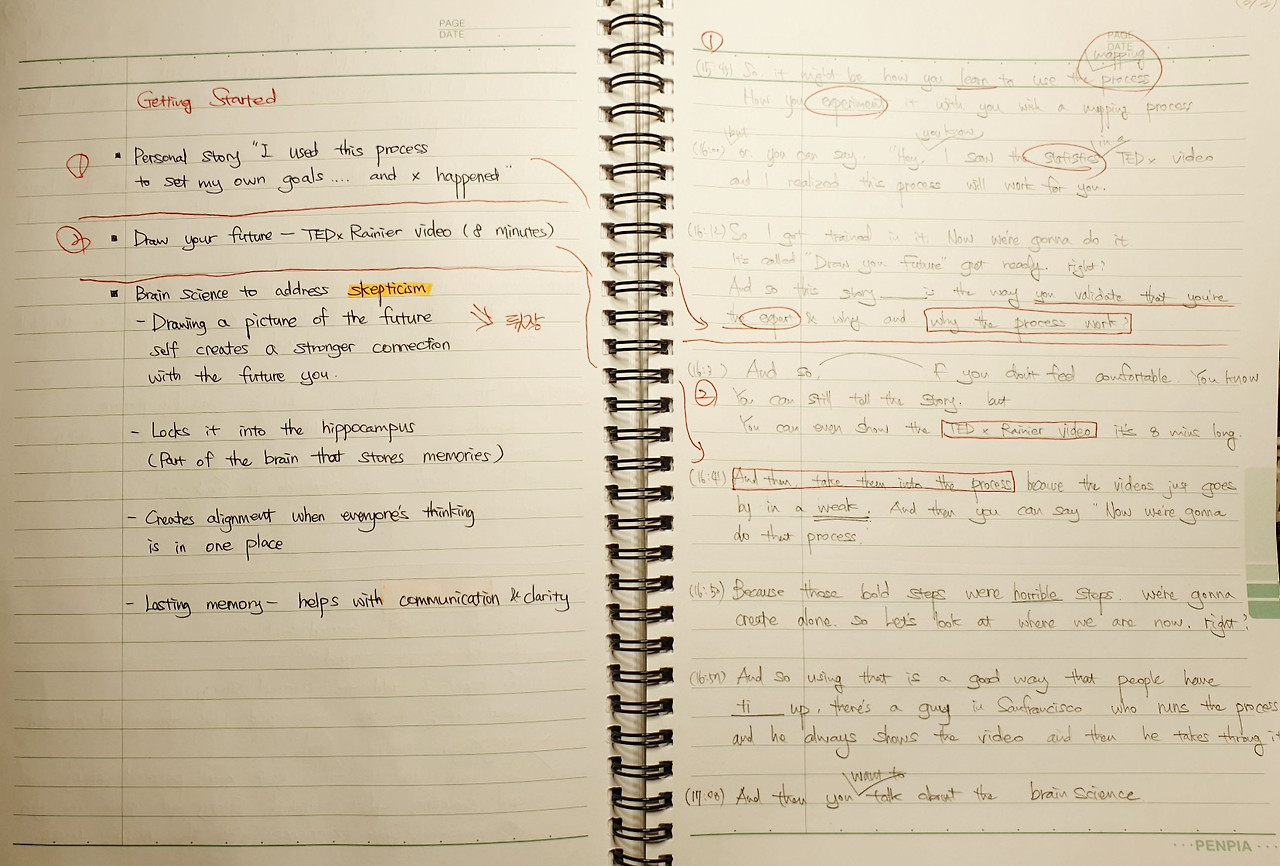 PAGE
DATE
Getting Started
① ▪ Personal story "I used this process
to set my own goals.... and x happened"
② ▪ Draw your future — TEDx Rainier video (8 minutes)
▪ Brain science to address skepticism
- Drawing a picture of the future
self creates a stronger connection
with the future you.
- Locks it into the hippocampus
(Part of the brain that stores memories)
- Creates alignment when everyone's thinking
is in one place
- Lasting memory - helps with communication & clarity
PAGE
DATE
①
mapping
So, it might be how you learn to use the process
How you experiment it with you with a mapping process
but you know in
(16:00) or you can say. "Hey, I saw the statistics TEDx video
and I realized this process will work for you.
(16:12) So I got trained in it. Now we're gonna do it
It's called "Draw you Future" get ready. right?
And so this story ____ is the way you validate that you're
the expert & why and why the process work?
And so, If you don't feel comfortable. You know
② You can still tell the story. but
You can even show the TEDx Rainier video it's 8 mins long.
(16:41) And then take them into the process because the videos just goes
by in a weak. And then you can say "Now we're gonna
do that process.
(16:50) Because those bold steps were horrible steps. we're gonna
create alone. so Let's look at where we are now. right?
(16:57) And so using that is a good way that people have
ti____ up, there's a guy in Sanfrancisco who runs the process
and he always shows the video and then he takes throug it
want to
(17:08) And then you talk about the brain science
PENPIA